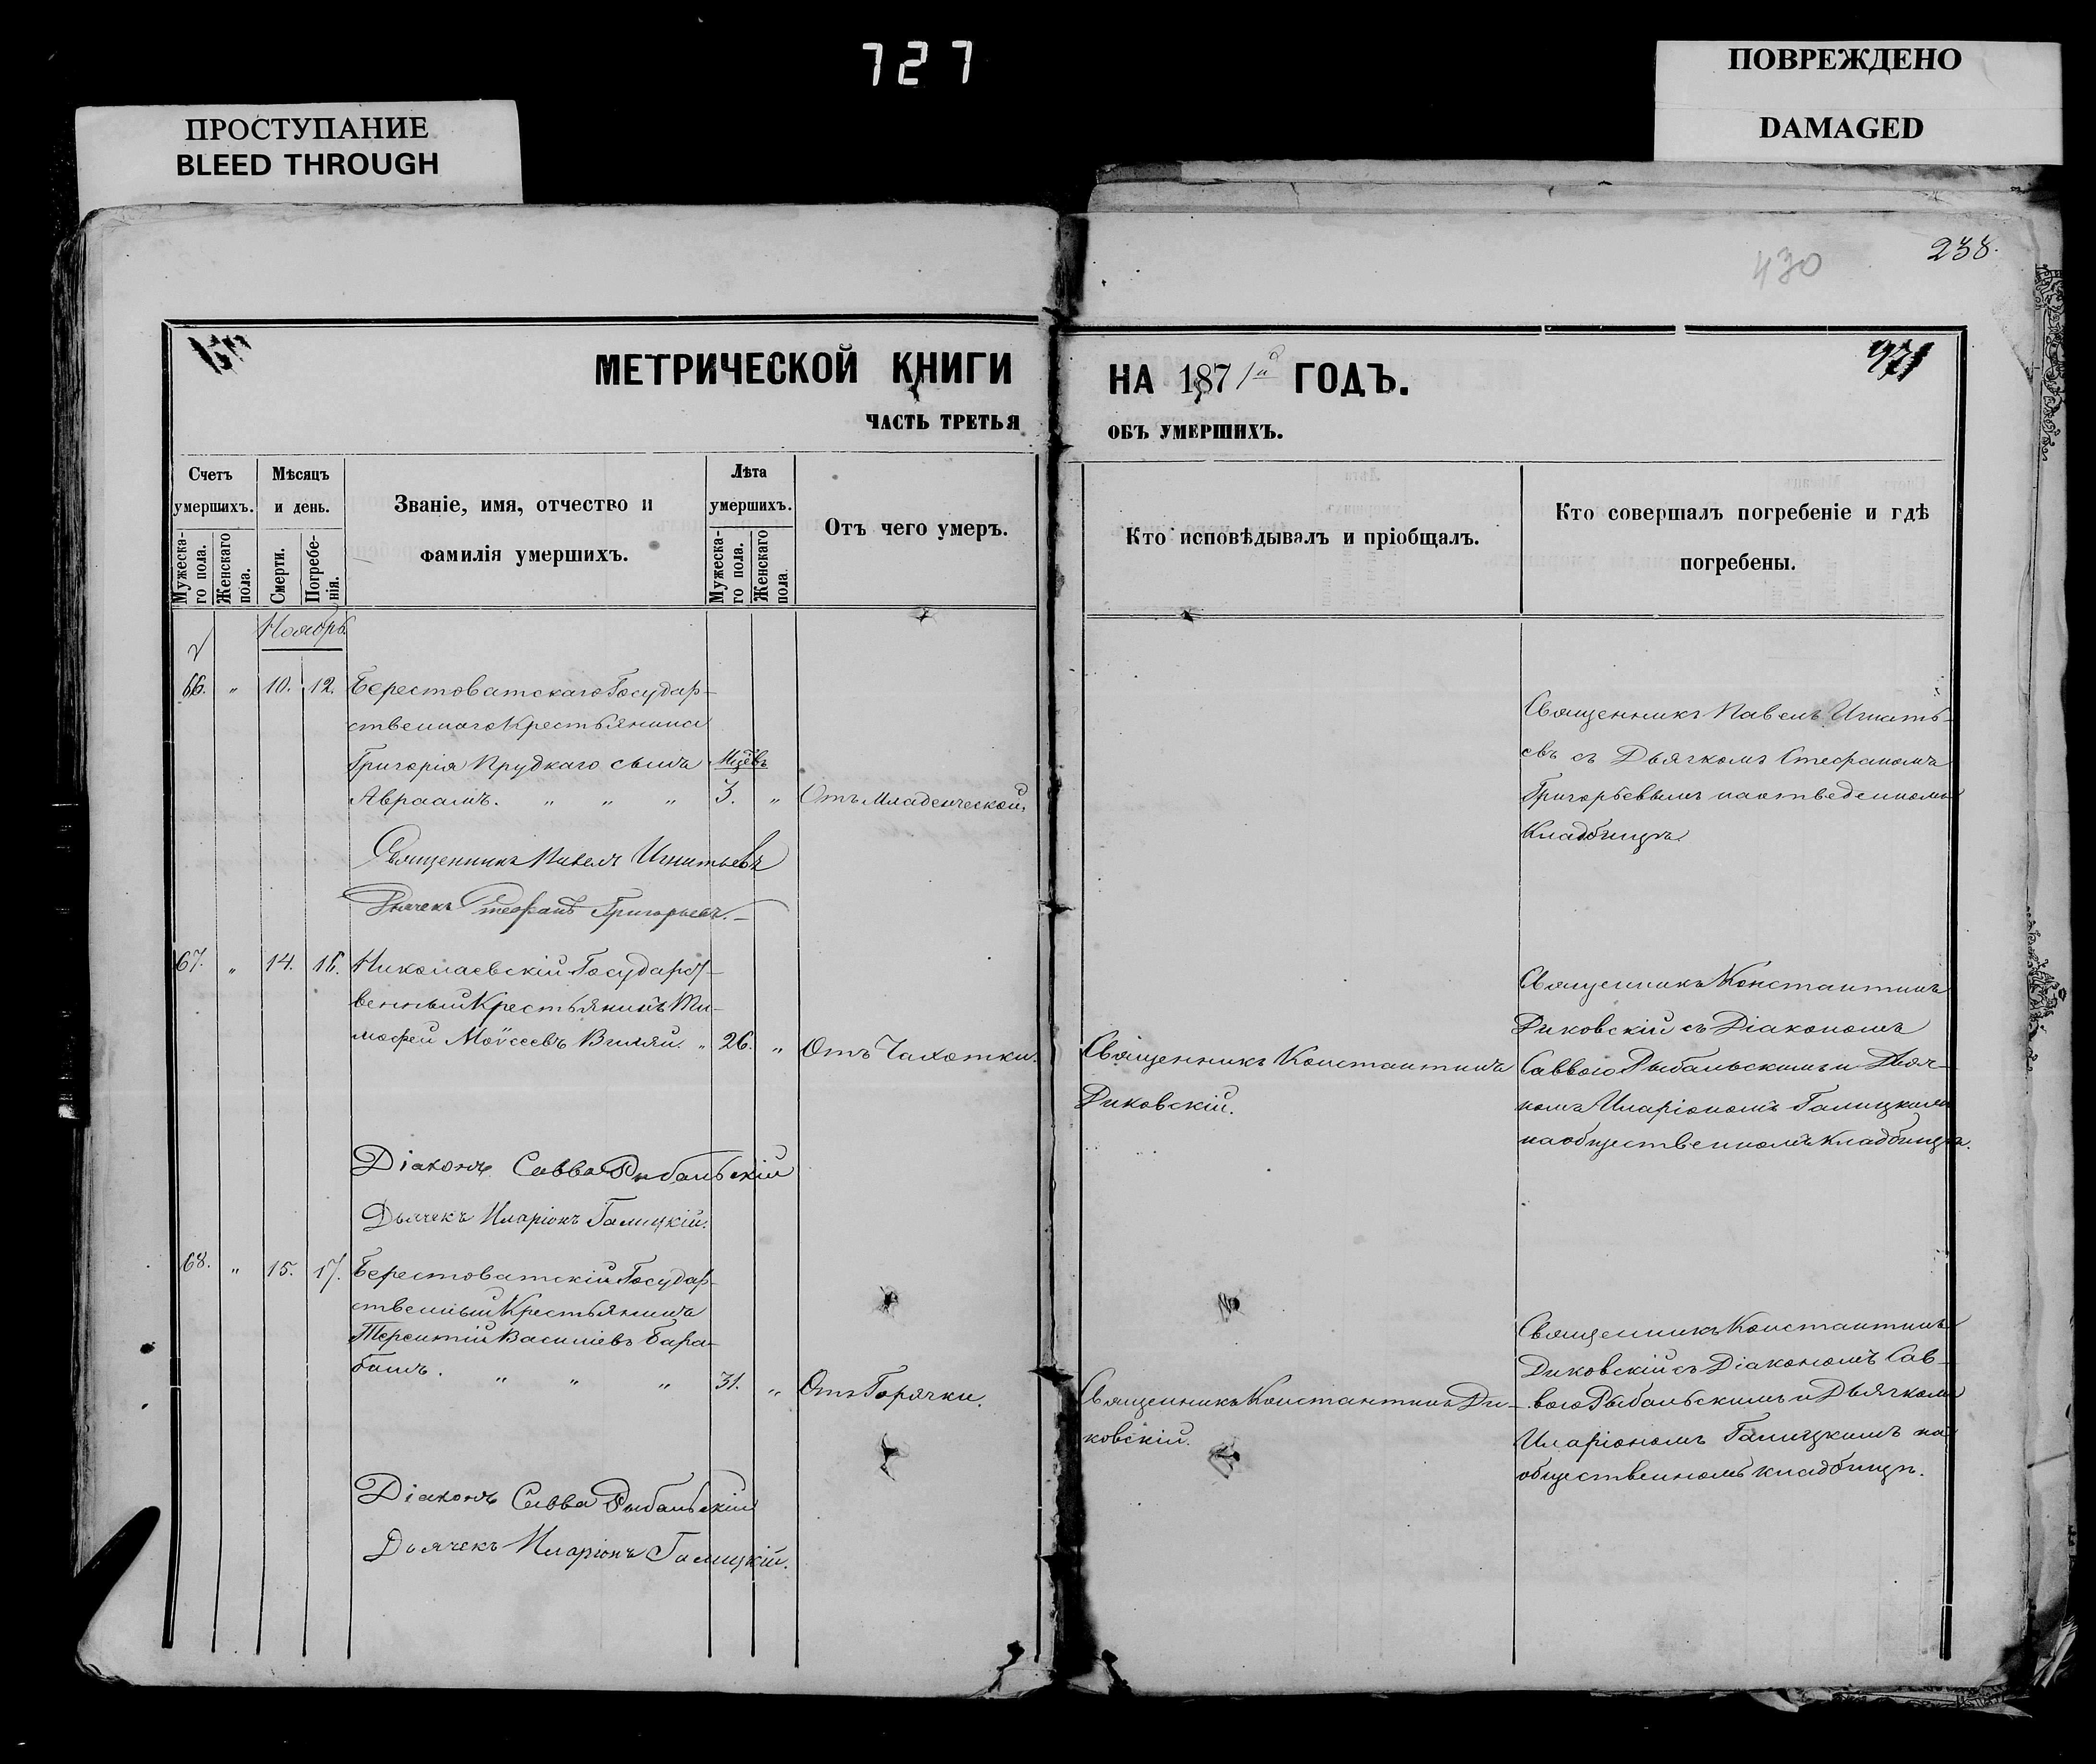 727
ПРОСТУПАНИЕ
BLEED THROUGH
ПОВРЕЖДЕНО
DAMAGED
430
238.
МЕТРИЧЕСКОЙ КНИГИ
НА 1871й ГОДЪ.
ЧАСТЬ ТРЕТЬЯ
ОБЪ УМЕРШИХЪ.
Счетъ умершихъ.
Мужеска-
го пола.
Женскаго
пола.
Мѣсяцъ и день.
Смерти.
Погребе-
нія.
Званіе, имя, отчество и
фамилія умершихъ.
Лѣта умершихъ.
Мужеска-
го пола.
Женскаго
пола.
Отъ чего умеръ.
Кто исповѣдывалъ и пріобщалъ.
Кто совершалъ погребеніе и гдѣ
погребены.
Ноябрь
66. " 10. 12. Берестоватскаго Государ-
ственнаго Крестьянина
Григорія Прудкаго сынъ Мцевъ
Авраамъ. " " " 3. " Отъ Младенческой.
Священникъ Павелъ Игнать-
евъ съ Дьячкомъ Стефаномъ
Григорьевымъ на отведенномъ
Кладбищѣ.
Священникъ Павелъ Игнатьевъ
Дьячекъ Стефанъ Григорьевъ.
67. " 14. 16. Николаевскій Государст-
венный Крестьянинъ Ти-
мофей Моѵсеевъ " 26. " Отъ Чахотки.
Священникъ Константинъ
Диковскій.
Священникъ Константинъ
Диковскій съ Діакономъ
Саввою Рыбальскимъ и Дьяч-
комъ Иларіономъ Галицкимъ
на общественномъ кладбищѣ.
Діаконъ Савва Рыбальскій
Дьячекъ Иларіонъ Галицкій.
68. " 15. 17. Берестоватскій Государ-
ственный Крестьянинъ
Терентій Василіевъ Бара-
банъ. " " " 31. " Отъ Горячки.
Священникъ Константинъ Ди-
ковскій.
Священникъ Константинъ
Диковскій съ Діакономъ Сав-
вою Рыбальскимъ и Дьячкомъ
Иларіономъ Галицкимъ на
общественномъ кладбищѣ.
Діаконъ Савва Рыбальскій
Дьячекъ Иларіонъ Галицкій.